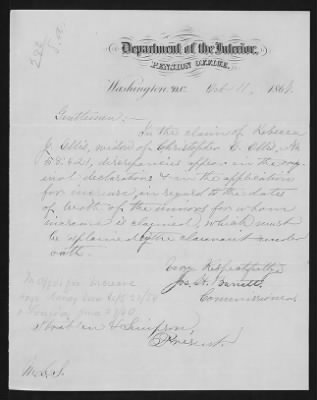 Department of the Interior,
PENSION OFFICE,
Washington, D.C. Oct 11, 186
Gentlemen,
In the claim of Rebecca
C. Ellis, widow of Christopher C. Ellis, No
58.421, discrepancies appear in the orig-
inal declaration & in the application
for increase, in regard to the dates
of birth of the minors for whom
increase is claimed, which must
be explained by the claimant under
oath.
Very Respectfully
Jos. H. Barrett
Commissioner
In appl for Increase
Simpson,
Present.